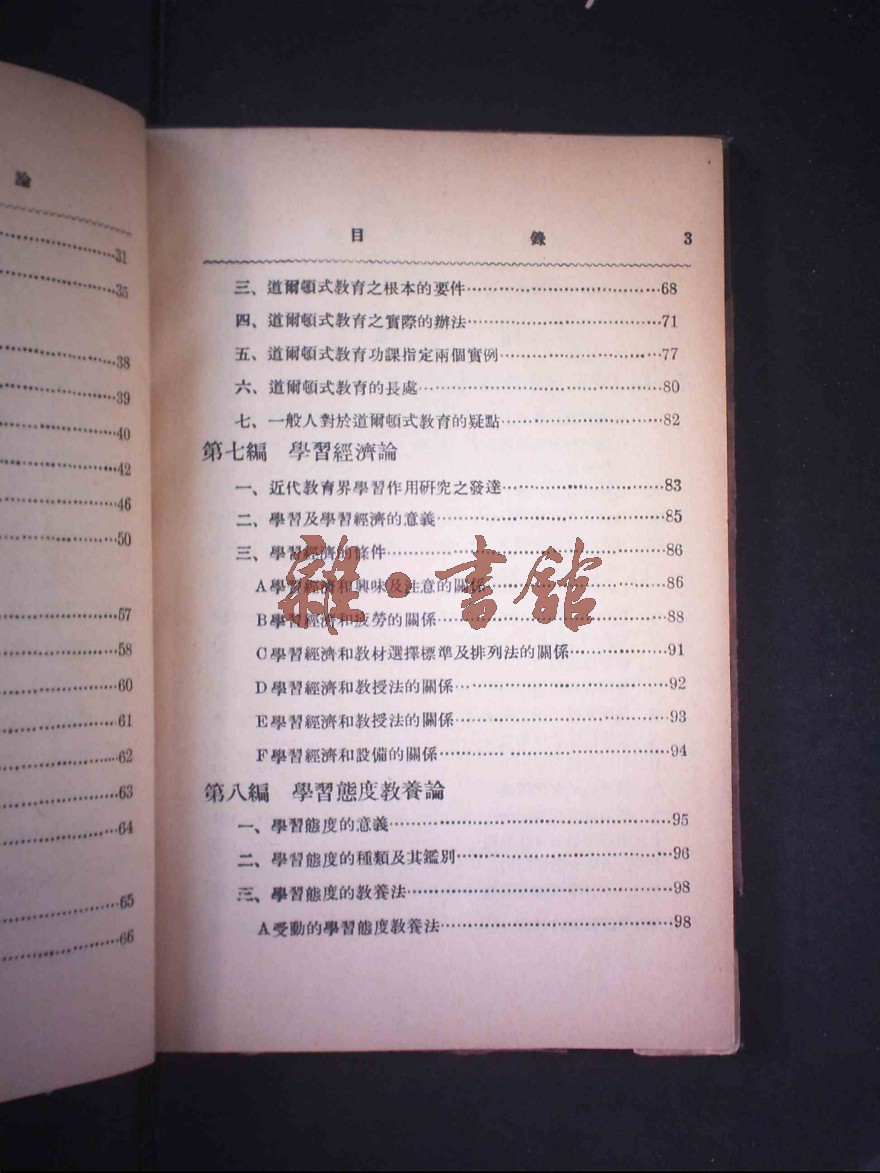 論
31
35
38
39
40
42
46
50
57
58
60
61
62
63
64
65
66
目錄 3
三、道爾頓式教育之根本的要件…………68
四、道爾頓式教育之實際的辦法…………71
五、道爾頓式教育功課指定兩個實例…………77
六、道爾頓式教育的長處…………80
七、一般人對於道爾頓式教育的疑點…………82
第七編 學習經濟論
一、近代教育界學習作用硏究之發達…………83
二、學習及學習經濟的意義…………85
三、學習經濟的條件…………86
A學習經濟和興味及注意的關係…………86
B學習經濟和疲勞的關係…………88
C學習經濟和教材選擇標準及排列法的關係…………91
D學習經濟和教授法的關係…………92
E學習經濟和教授法的關係…………93
F學習經濟和設備的關係…………94
第八編 學習態度教養論
一、學習態度的意義…………95
二、學習態度的種類及其鑑別…………96
三、學習態度的教養法…………98
A受動的學習態度教養法…………98
雜·書館